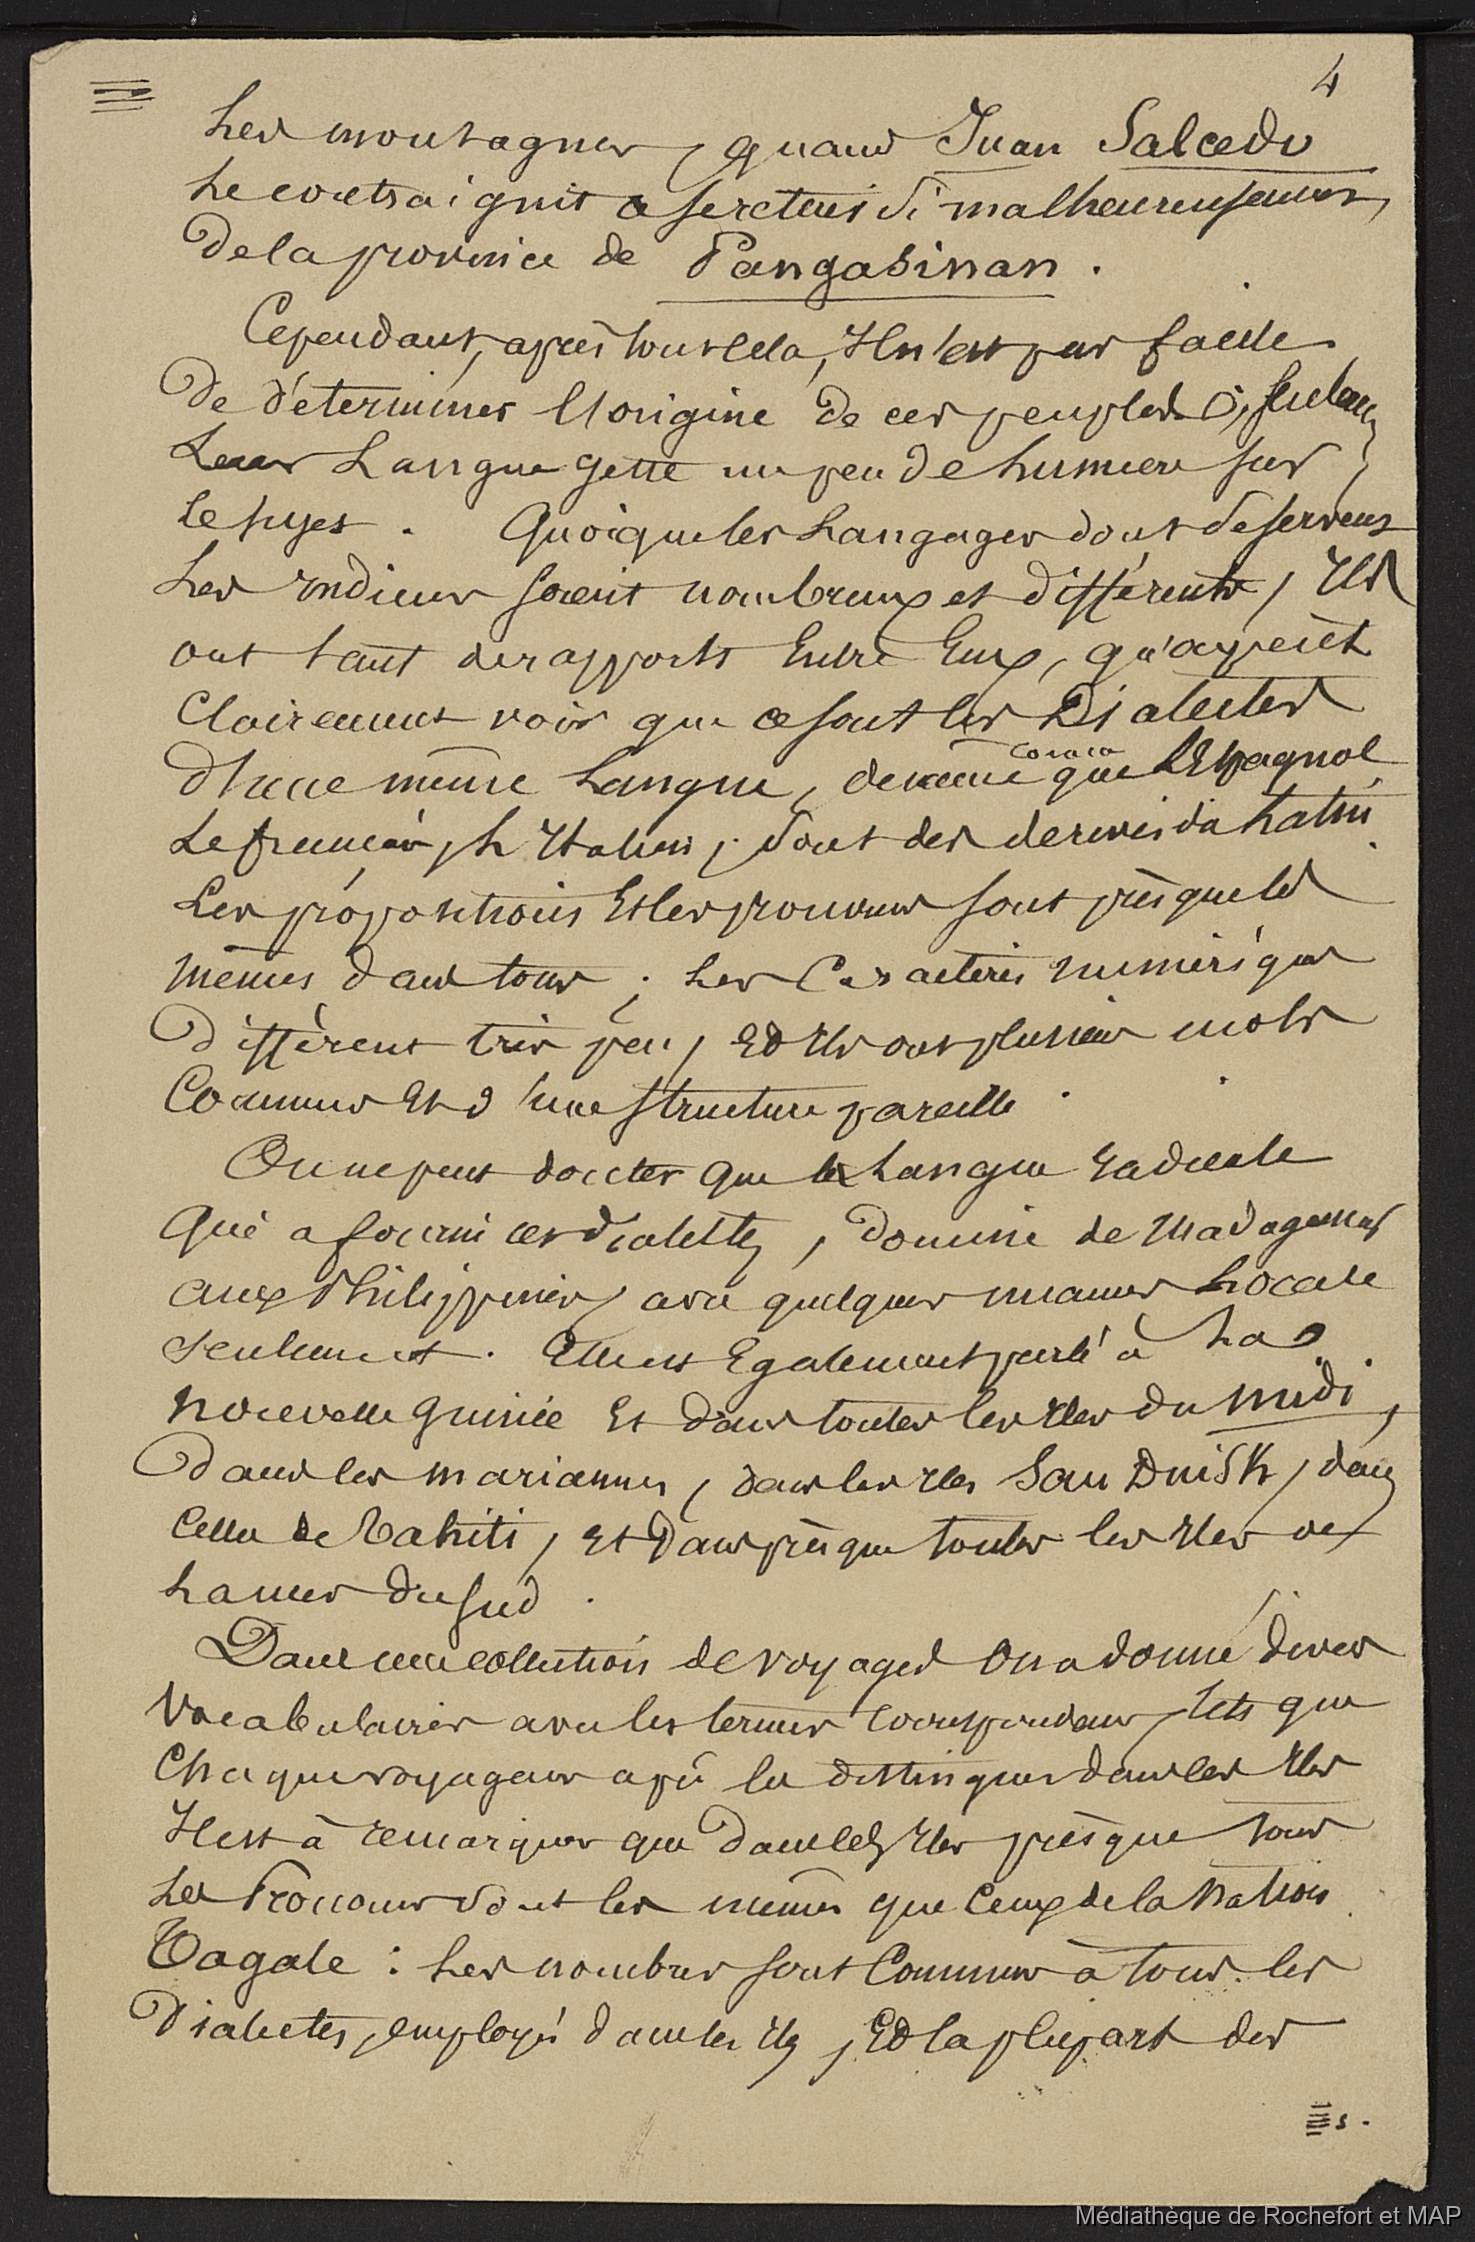 4
Les montagnes, quand Juan Salcedo
Le contraignit a se retirer si malheureusement,
De la province de Pangasinan.
Cependant, après tout cela, Il n'est pas facile
De déterminer l'origine de ces peuples ; seulement
Leur Langue gette un peu de Lumiere sur
Le sujet. Quoique les Langages dont se servent
Les indiens soient nombreux et différents, Ils
ont tant de rapports Entre Eux, qu'
Clairement voir que ce sont les Dialectes
d'une même Langue, de même que l'Espagnol
Le français, L'Italien, sont des derivés du Latin.
Les prépositions Et les pronoms sont presque les
mêmes dans tous ; Les Caracteres numeriques
Différent très peu, Et Ils ont plusieurs mots
Communs Et d'une structure pareille.
On ne peut douter que la Langue radicale
Qui a fourni ces dialectes, domine de Madagascar
aux Philippines, avec quelques nuances Locale
seulement. Elle est Egalement parlé à La
nouvelle guinée Et dans toutes les Iles du midi,
Dans les mariannes, dans les Iles San Duisk, dans
Celles de Tahiti, Et Dans presque toutes les Iles de
La mer du sud.
Dans une collection de voyages On a donné divers
Vocabulaires avec les termes Correspondans, tels que
Chaque voyageur a pû les distinguer dans les Iles
Il est à remarquer que Dans les Iles presque tous
Les Pronoms sont les mêmes que Ceux de la Nation
Tagale : Les nombres sont Communs à tous les
Dialectes, employés dans les Iles, Et la plupart des
5.
Médiathèque de Rochefort et MAP